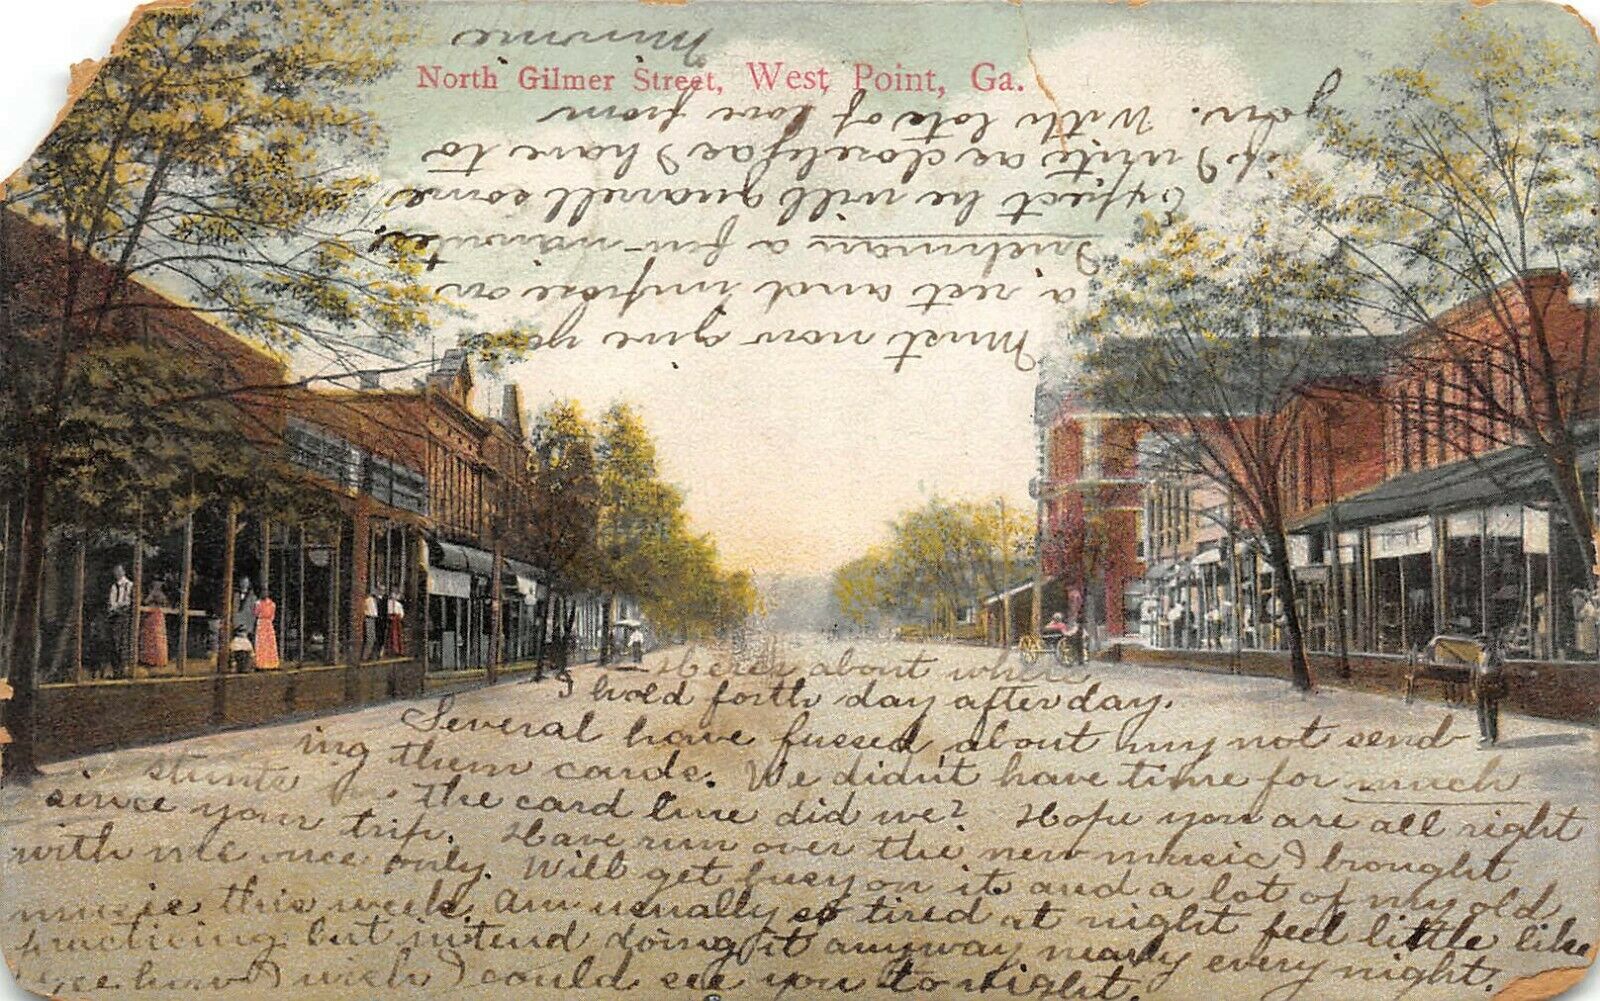 North Gilmer Street, West Point, Ga.
Heres about where
I hold forth day after day.
Several have fussed about my not send-
ing them cards. We didn't have time for much
stunts in the card line did we? Hope you are all right
since your trip. Have run over the new music I brought
with me once only. Will get busy on it and a lot of my old
music this week. Am usually so tired at night feel little like
practicing but intend doing it anyway nearly every night.
Gee how I wish I could see you to night.
Must now give you
a rest and impose on
a few minutes.
Expect he will quarrell some
if I write as closely as I have to
you. With lots of love from
Minnie